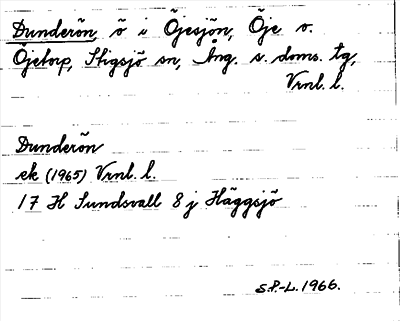 Dunderön, ö i Öjesjön, Öje o.
Öjetorp, Stigsjö sn, Ång. s. doms. tg,
Vrnl. l.
Dunderön
ek (1965) Vrnl. l.
17 H Sundsvall 8 j Häggsjö
S.P.-L. 1966.